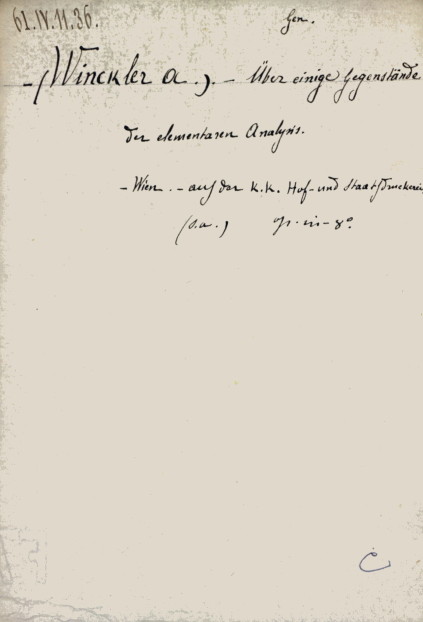 61.IV.11.36.
Gen.
- (Winckler A.). - Über einige Gegenstände
der elementaren Analysis.
- Wien. - aus der K.K. Hof- und Staatsdruckerei,
(s.a.) gr. in-8°.
C